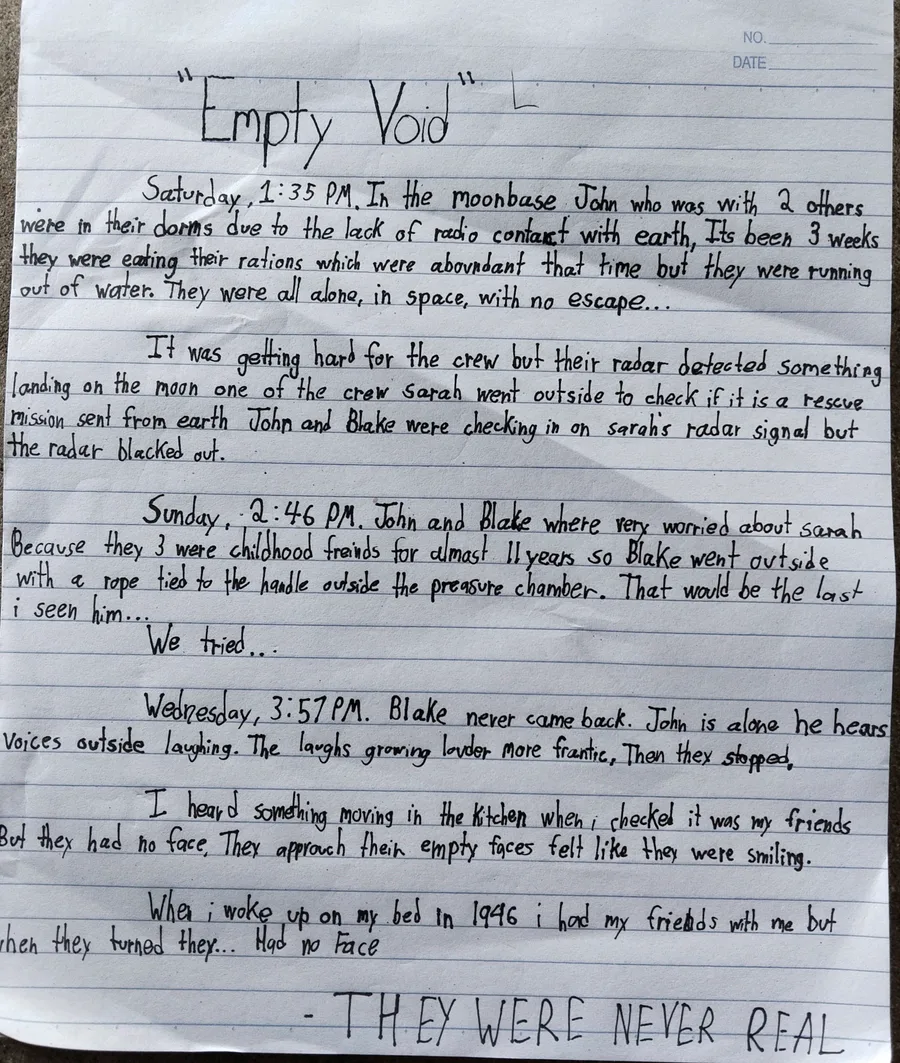 NO.
DATE
"Empty Void"
Saturday, 1:35 PM. In the moonbase John who was with 2 others
were in their dorms due to the lack of radio contact with earth, Its been 3 weeks
they were eating their rations which were aboundant that time but they were running
out of water. They were all alone, in space, with no escape...
It was getting hard for the crew but their radar detected something
landing on the moon one of the crew Sarah went outside to check if it is a rescue
mission sent from earth John and Blake were checking in on sarah's radar signal but
the radar blacked out.
Sunday, 2:46 PM. John and Blake where very worried about sarah
Because they 3 were childhood freinds for almast 11 years so Blake went outside
with a rope tied to the handle outside the preasure chamber. That would be the last
i seen him...
We tried...
Wednesday, 3:57 PM. Blake never came back. John is alone he hears
Voices outside laughing. The laughs growing louder more frantic, Then they stopped,
I heard something moving in the kitchen when i checked it was my friends
But they had no face, They approuch their empty faces felt like they were smiling.
When i woke up on my bed in 1946 i had my friends with me but
hen they turned they... Had no Face
- THEY WERE NEVER REAL